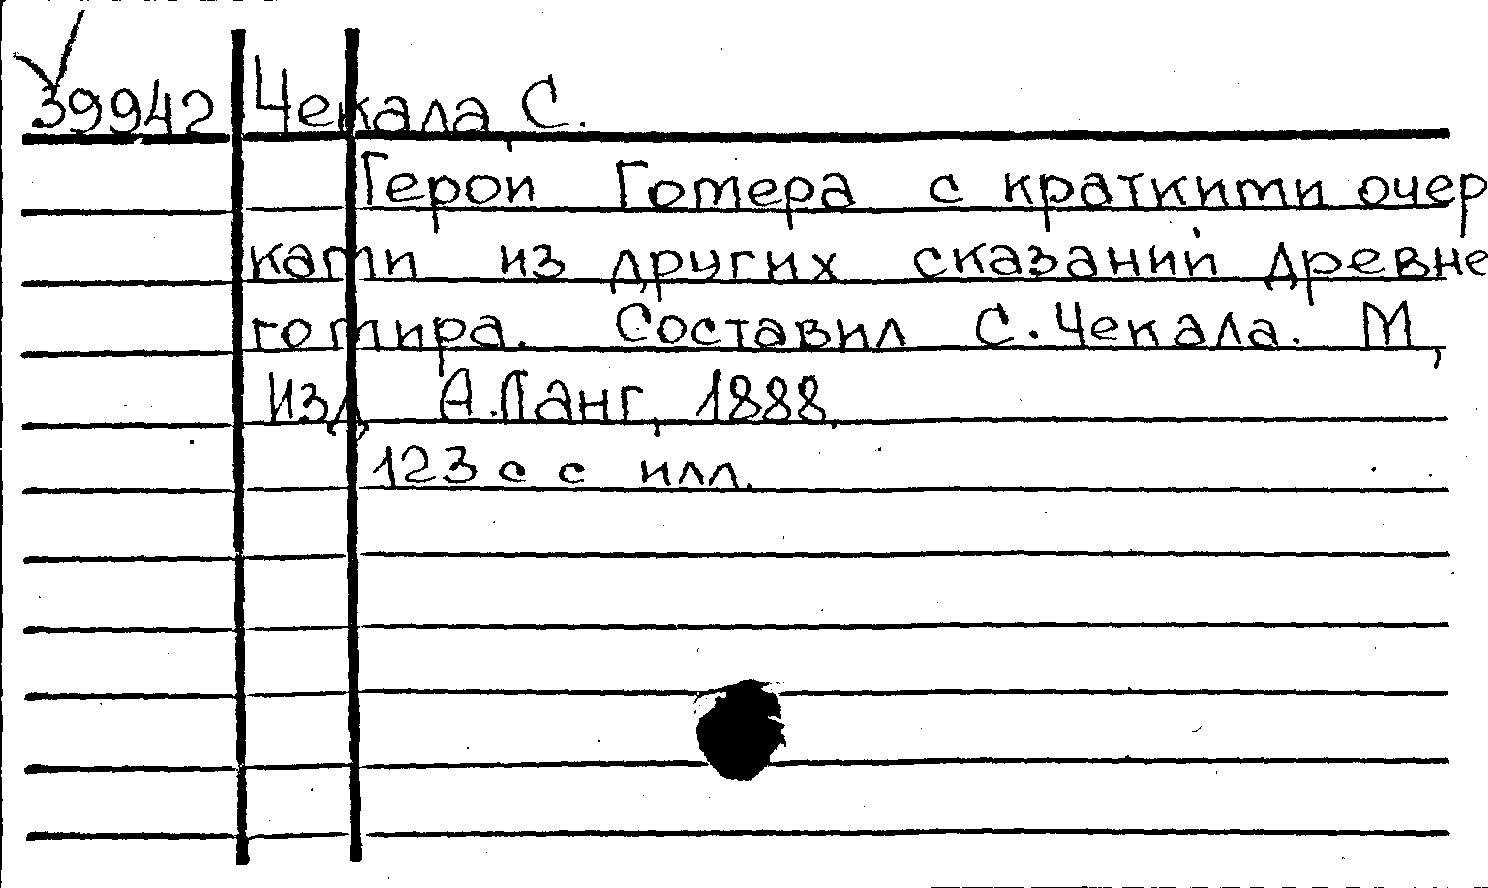 39942 Чекала, С.
Герои Гомера с краткими очер
ками из других сказаний древне
го мира. Составил С. Чекала. М,
Изд А. Ланг, 1888,
123 с с илл.